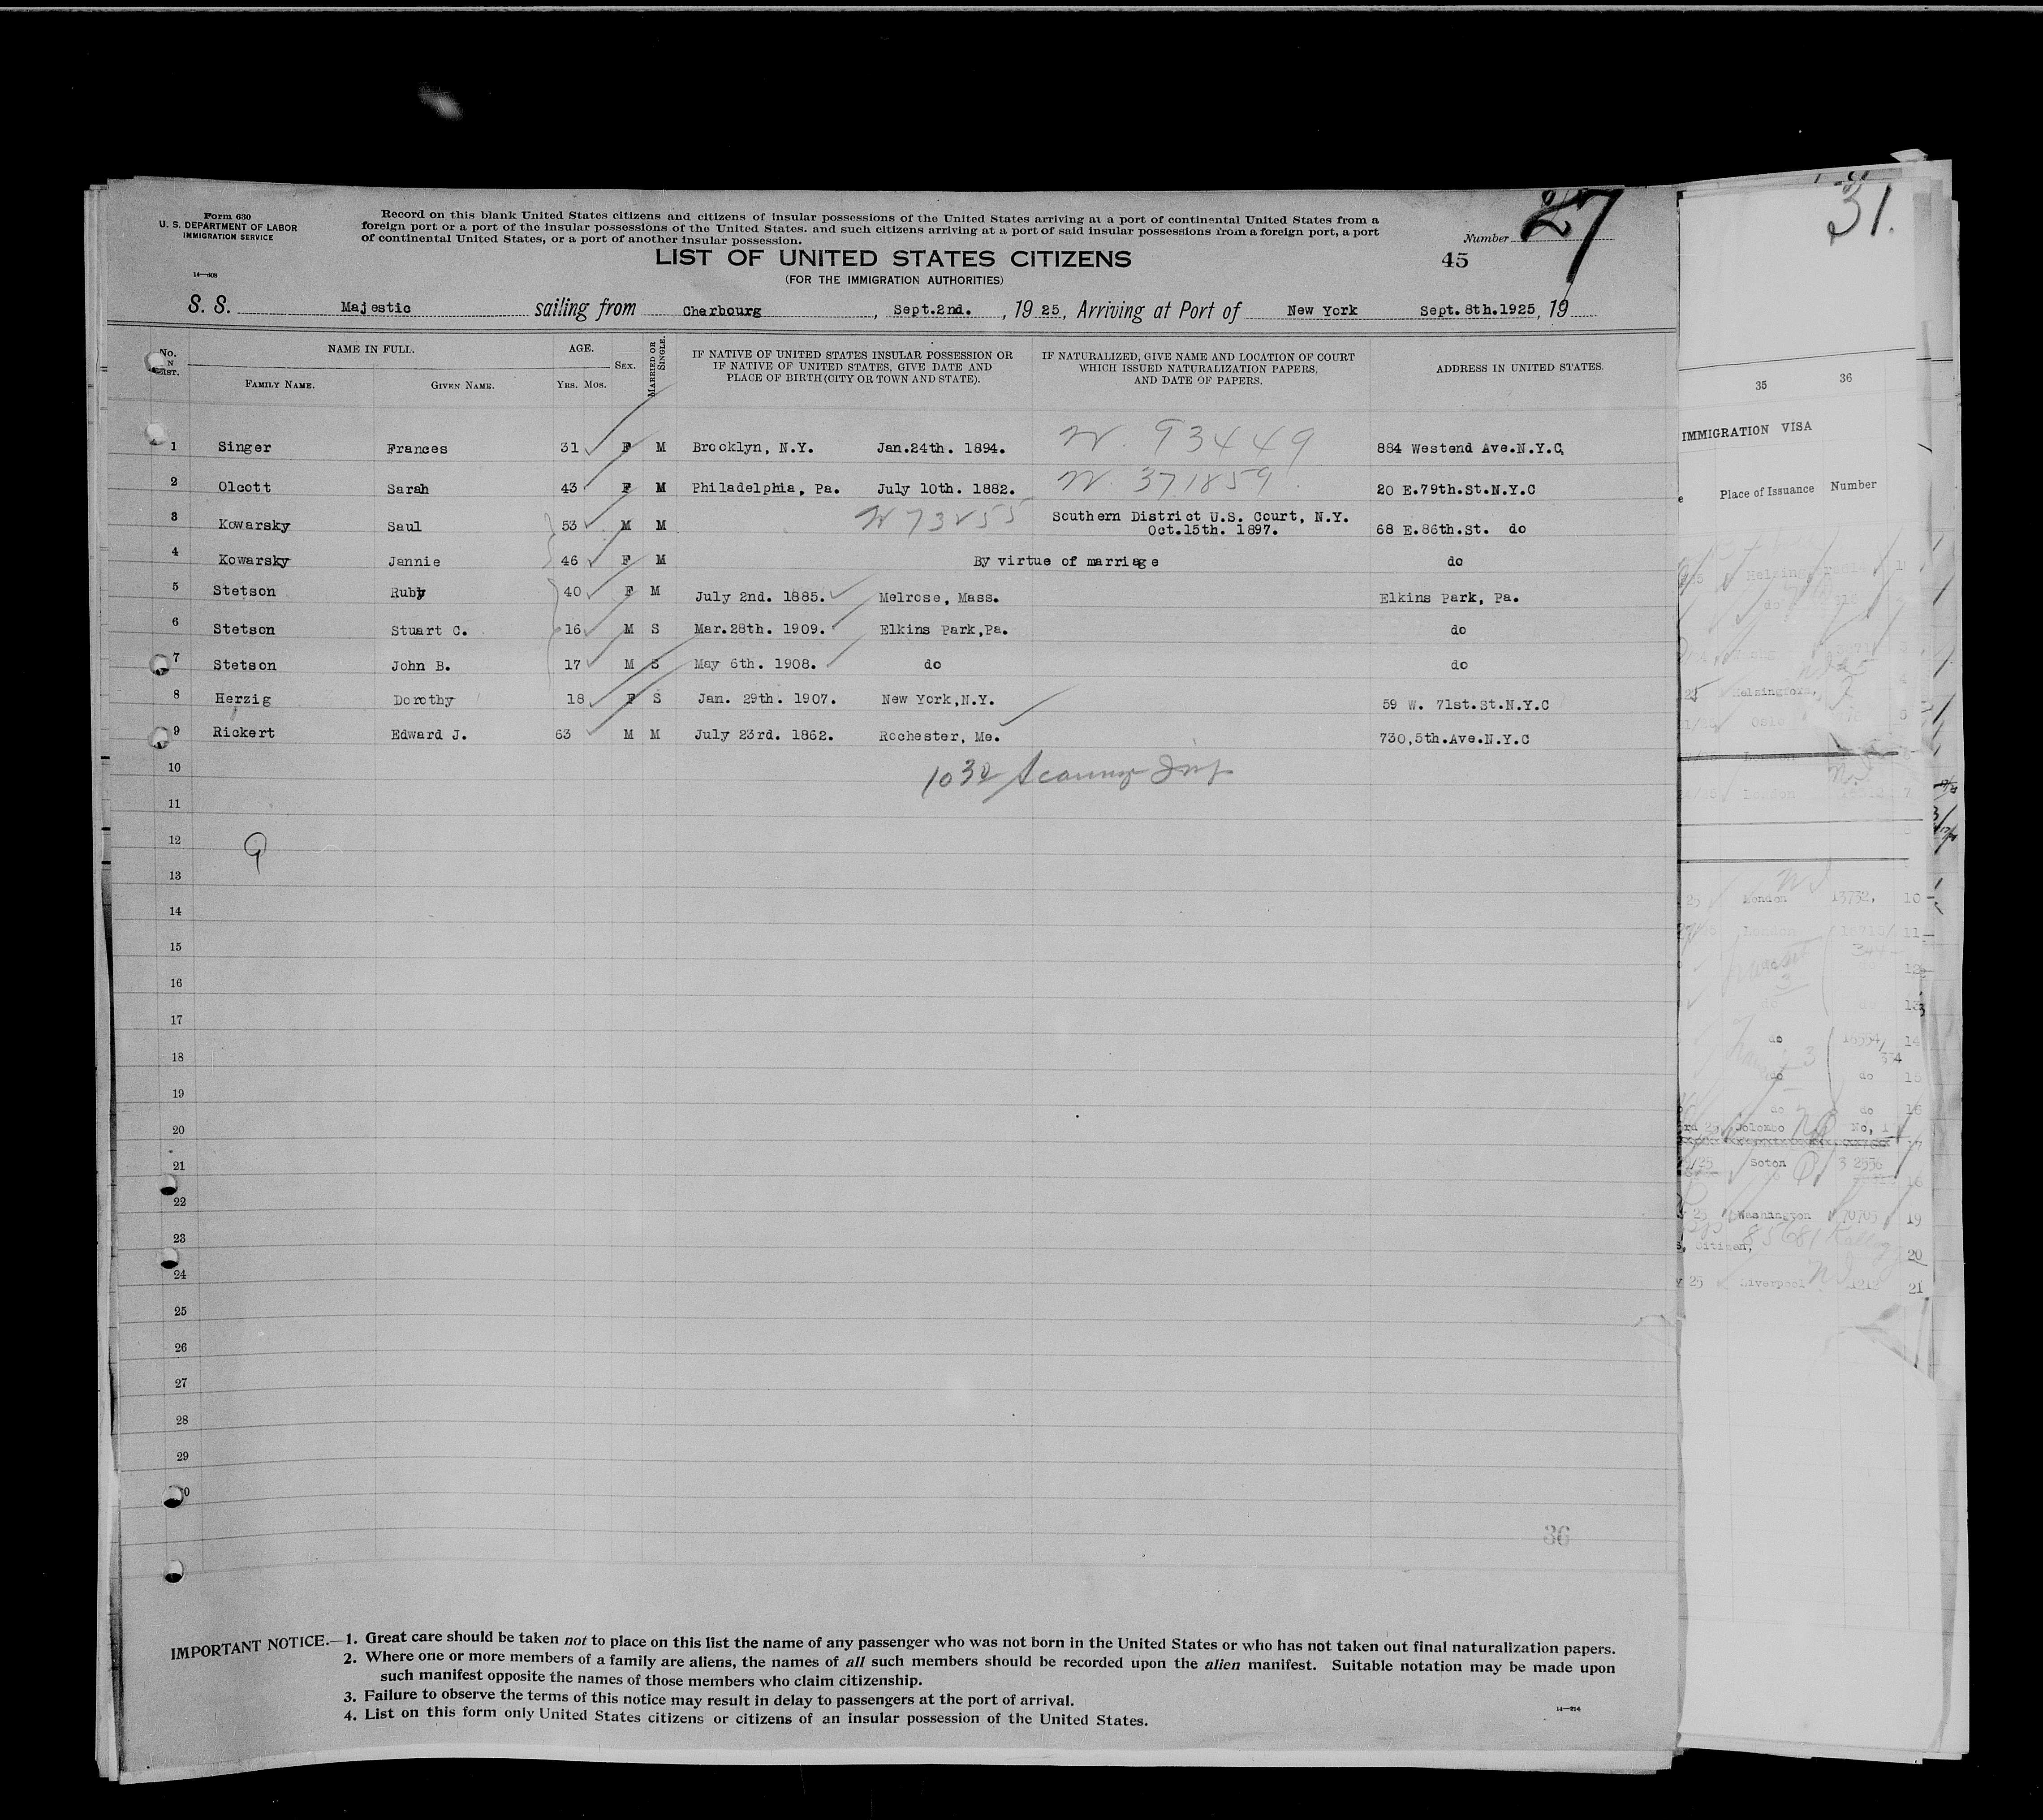 Form 630
U. S. DEPARTMENT OF LABOR
IMMIGRATION SERVICE
14—508
Record on this blank United States citizens and citizens of insular possessions of the United States arriving at a port of continental United States from a
foreign port or a port of the insular possessions of the United States. and such citizens arriving at a port of said insular possessions from a foreign port, a port
of continental United States, or a port of another insular possession.
Number 27
LIST OF UNITED STATES CITIZENS 45
(FOR THE IMMIGRATION AUTHORITIES)
S. S. Majestic sailing from Cherbourg, Sept.2nd., 19 25, Arriving at Port of New York Sept. 8th.1925, 19
No. LIST. NAME IN FULL. AGE. SEX. MARRIED OR SINGLE. IF NATIVE OF UNITED STATES INSULAR POSSESSION OR IF NATIVE OF UNITED STATES, GIVE DATE AND PLACE OF BIRTH (CITY OR TOWN AND STATE). IF NATURALIZED, GIVE NAME AND LOCATION OF COURT WHICH ISSUED NATURALIZATION PAPERS, AND DATE OF PAPERS. ADDRESS IN UNITED STATES.
FAMILY NAME. GIVEN NAME. YRS. MOS.
1 Singer Frances 31 F M Brooklyn, N.Y. Jan.24th. 1894. N. 93449 884 Westend Ave.N.Y.C.
2 Olcott Sarah 43 F M Philadelphia, Pa. July 10th. 1882. N. 371859 20 E.79th.St.N.Y.C
3 Kowarsky Saul 53 M M Southern District U.S. Court, N.Y. Oct.15th. 1897. 68 E.86th.St. do
4 Kowarsky Jannie 46 F M By virtue of marriage do
5 Stetson Ruby 40 F M July 2nd. 1885. Melrose, Mass. Elkins Park, Pa.
6 Stetson Stuart C. 16 M S Mar.28th. 1909. Elkins Park,Pa. do
7 Stetson John B. 17 M S May 6th. 1908. do do
8 Herzig Dorothy 18 F S Jan. 29th. 1907. New York,N.Y. 59 W. 71st.St.N.Y.C
9 Rickert Edward J. 63 M M July 23rd. 1862. Rochester, Me. 730,5th.Ave.N.Y.C
10
11
12
9
13
14
15
16
17
18
19
20
21
22
23
24
25
26
27
28
29
36
IMPORTANT NOTICE.—1. Great care should be taken not to place on this list the name of any passenger who was not born in the United States or who has not taken out final naturalization papers.
2. Where one or more members of a family are aliens, the names of all such members should be recorded upon the alien manifest. Suitable notation may be made upon
such manifest opposite the names of those members who claim citizenship.
3. Failure to observe the terms of this notice may result in delay to passengers at the port of arrival.
4. List on this form only United States citizens or citizens of an insular possession of the United States.
31.
35 36
IMMIGRATION VISA
Place of Issuance Number
Helsingfors,
Oslo
London
London 13732, 10
London 11
do
do 13
do 14
334
do do 15
do do 16
Colombo No, 1
17
Soton
Washington 70705 19
20
25 Liverpool 21